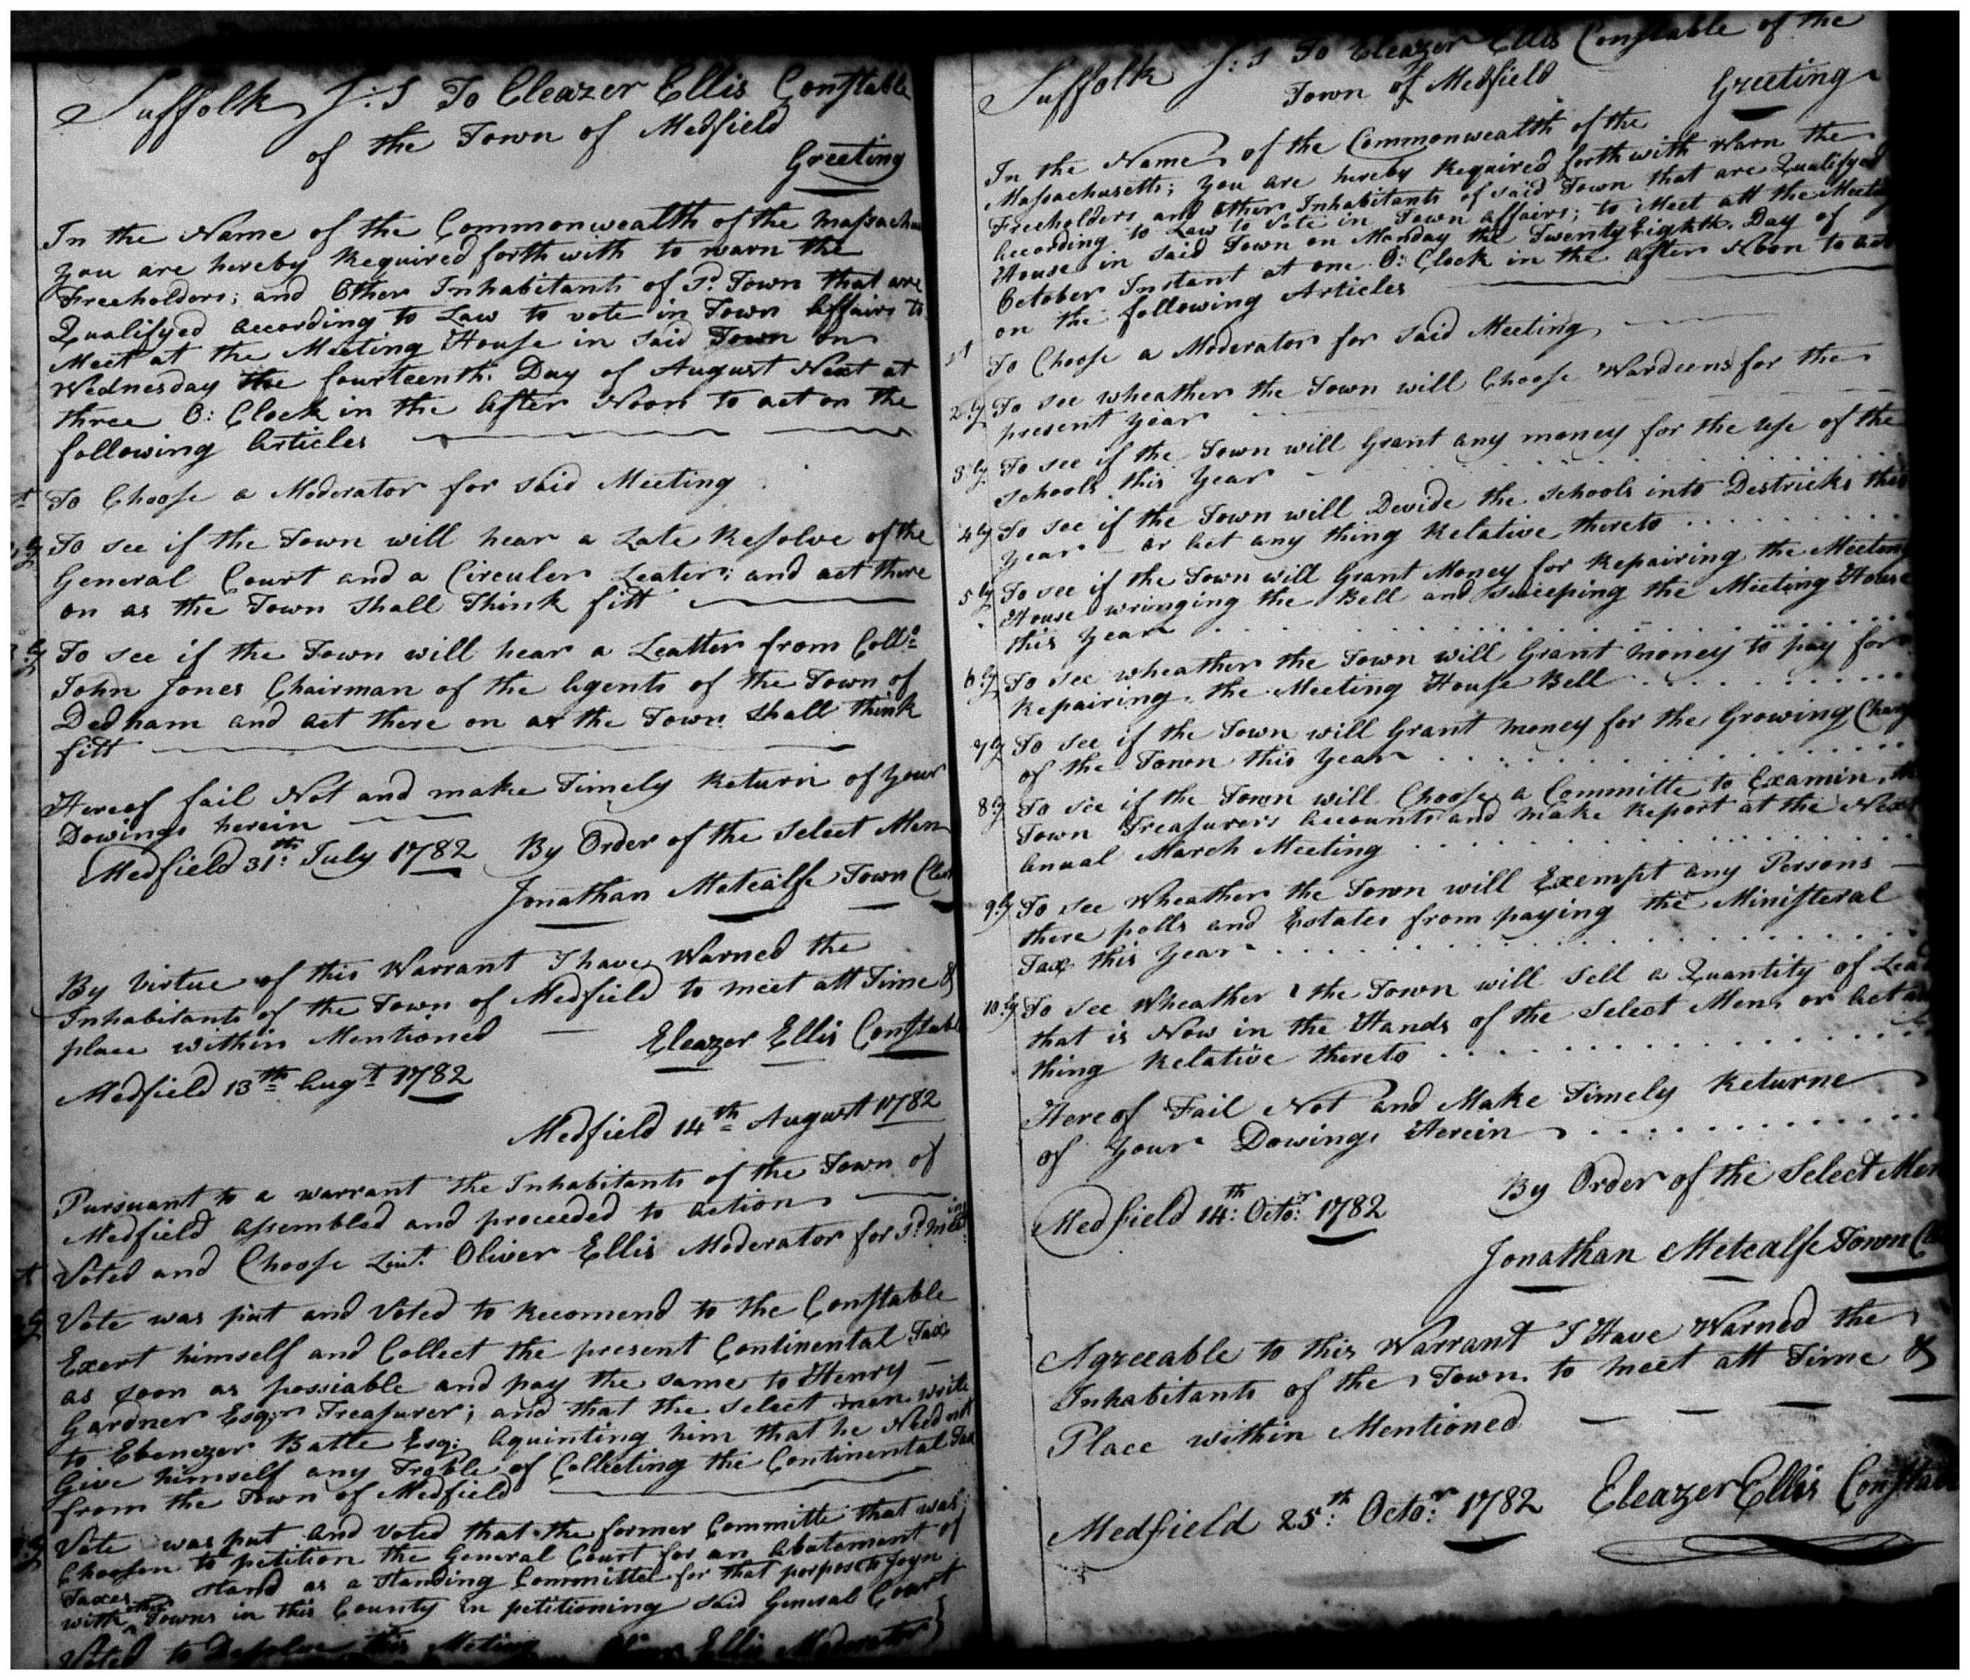 Suffolk S:S To Eleazer Ellis Constable
of the Town of Medfield
Greeting
In the Name of the Commonwealth of the Massachu
you are hereby Required forthwith to warn the
Freeholders; and Other Inhabitants of Sd. Town that are
Qualifyed according to Law to vote in Town affairs to
Meet at the Meeting House in said Town on
Wednesday the fourteenth Day of August Next at
three O: Clock in the After Noon to act on the
following Articles
To Choose a Moderator for said Meeting
To see if the Town will hear a Late Resolve of the
General Court and a Circuler Leater; and act there
on as the Town Shall Think fitt
To see if the Town will hear a Leatter from Collo.
John Jones Chairman of the Agents of the Town of
Dedham and act there on as the Town Shall think
fitt
Hereof fail Not and make Timely Return of your
Dowings herein
Medfield 31th: July 1782 By Order of the Select Men
Jonathan Metcalfe Town Cler
By Virtue of this Warrant I have Warned the
Inhabitants of the Town of Medfield to meet att Time &
place within Mentioned
Eleazer Ellis Constab
Medfield 13th Augt 1782
Medfield 14th August 1782
Pursuant to a warrant the Inhabitants of the Town of
Medfield assembled and proceeded to action
Voted and Choose Liut. Oliver Ellis Moderator for Sd. meeting
Vote was put and Voted to Recomend to the Constable
Exert himself and Collect the present Continental Tax
as soon as possiable and pay the same to Henry
Gardner Esqr Treasurer; and that the Select men write
to Ebenezer Batte Esq: Aquinting him that he Need not
Give himself any Troble of Collecting the Continental Tax
from the Town of Medfield
Vote was put and Voted that the former Committe that was
Choosen to petition the General Court for an abatement of
Taxes stand as a standing Committee for that porpose to Joyn
with other Towns in this County in petitioning said General Court
Voted to Desolve this Meting Oliver Ellis Moderator
Suffolk S:S To Eleazer Ellis Constable of the
Town of Medfield
Greeting
In the Name of the Commonwealth of the
Massachusetts; you are hereby Required forthwith Warn the
Freeholders and Other Inhabitants of said Town that are Qualifyed
According to Law to Vote in Town affairs; to Meet att the Meeting
House in said Town on Monday the Twenty Eighth Day of
October Instant at one O: Clock in the after Noon to act
on the following Articles
1st To Choose a Moderator for said Meeting
2ly To see wheather the Town will Choose Wardeens for the
present year
3ly To see if the Town will Grant any money for the use of the
schools this Year
4ly To see if the Town will Devide the schools into Destricks this
year or act any thing Relative thereto
5ly To see if the Town will Grant Money for Repairing the Meeting
House wringing the Bell and sweeping the Meeting House
this year
6ly To see wheather the Town will Grant money to pay for
Repairing the Meeting House Bell
7ly To see if the Town will Grant money for the Growing Charg
of the Town this year
8ly To see if the Town will Choose a Committe to Examin the
Town Treasurers accounts and make Report at the Next
Anual March Meeting
9ly To see Wheather the Town will Exempt any Persons
there polls and Estates from paying the Ministeral
Tax this Year
10ly To see Wheather the Town will Sell a Quantity of Lead
that is Now in the Hands of the Select Men or act any
thing Relative thereto
Hereof Fail Not and Make Timely Returne
of Your Dowings Herein
By Order of the Select Men
Medfield 14th: Octor: 1782
Jonathan Metcalfe Town Cl
Agreeable to this Warrant I Have Warned the
Inhabitants of the Town to meet att Time &
Place within Mentioned
Medfield 25th: Octor: 1782 Eleazer Ellis Constab